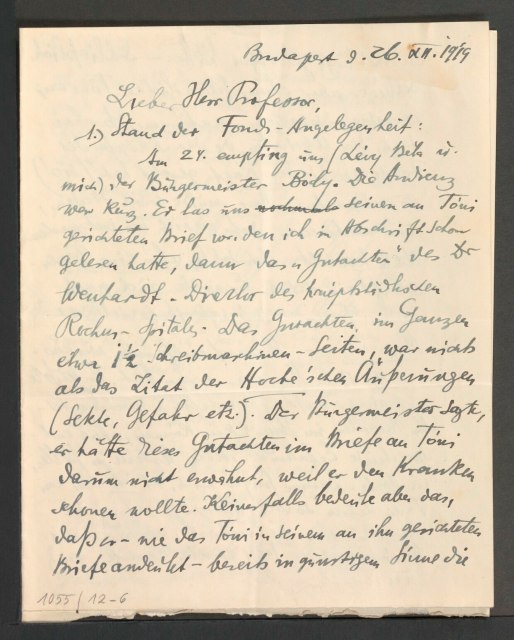 Budapest d. 26. XII. 1919
Lieber Herr Professor,
1.) Stand der Fonds-Angelegenheit:
Am 24. empfing uns (Lévy Béla u.
mich) der Bürgermeister Bódy. Die Audienz
war kurz. Er las uns nochmals seinen an Tóni
gerichteten Brief vor, den ich in Abschrift schon
gelesen hatte, dann das „Gutachten" des Dr
Wenhardt - Direktor des hauptstädtischen
Rochus-Spitales. Das Gutachten, im Ganzen
etwa 1 1/2 Schreibmaschinen-Seiten, war nichts
als das Zitat der Hoche'schen Äußerungen
(Sekte, Gefahr etz.). Der Bürgermeister sagte,
er hätte dieses Gutachten im Briefe an Tóni
darum nicht erwähnt, weil er den Kranken
schonen wollte. Keinesfalls bedeute aber das,
daß er - wie das Tóni in seinem an ihn gerichteten
Briefe andeutet - bereits in günstigem Sinne die
1055 / 12-6